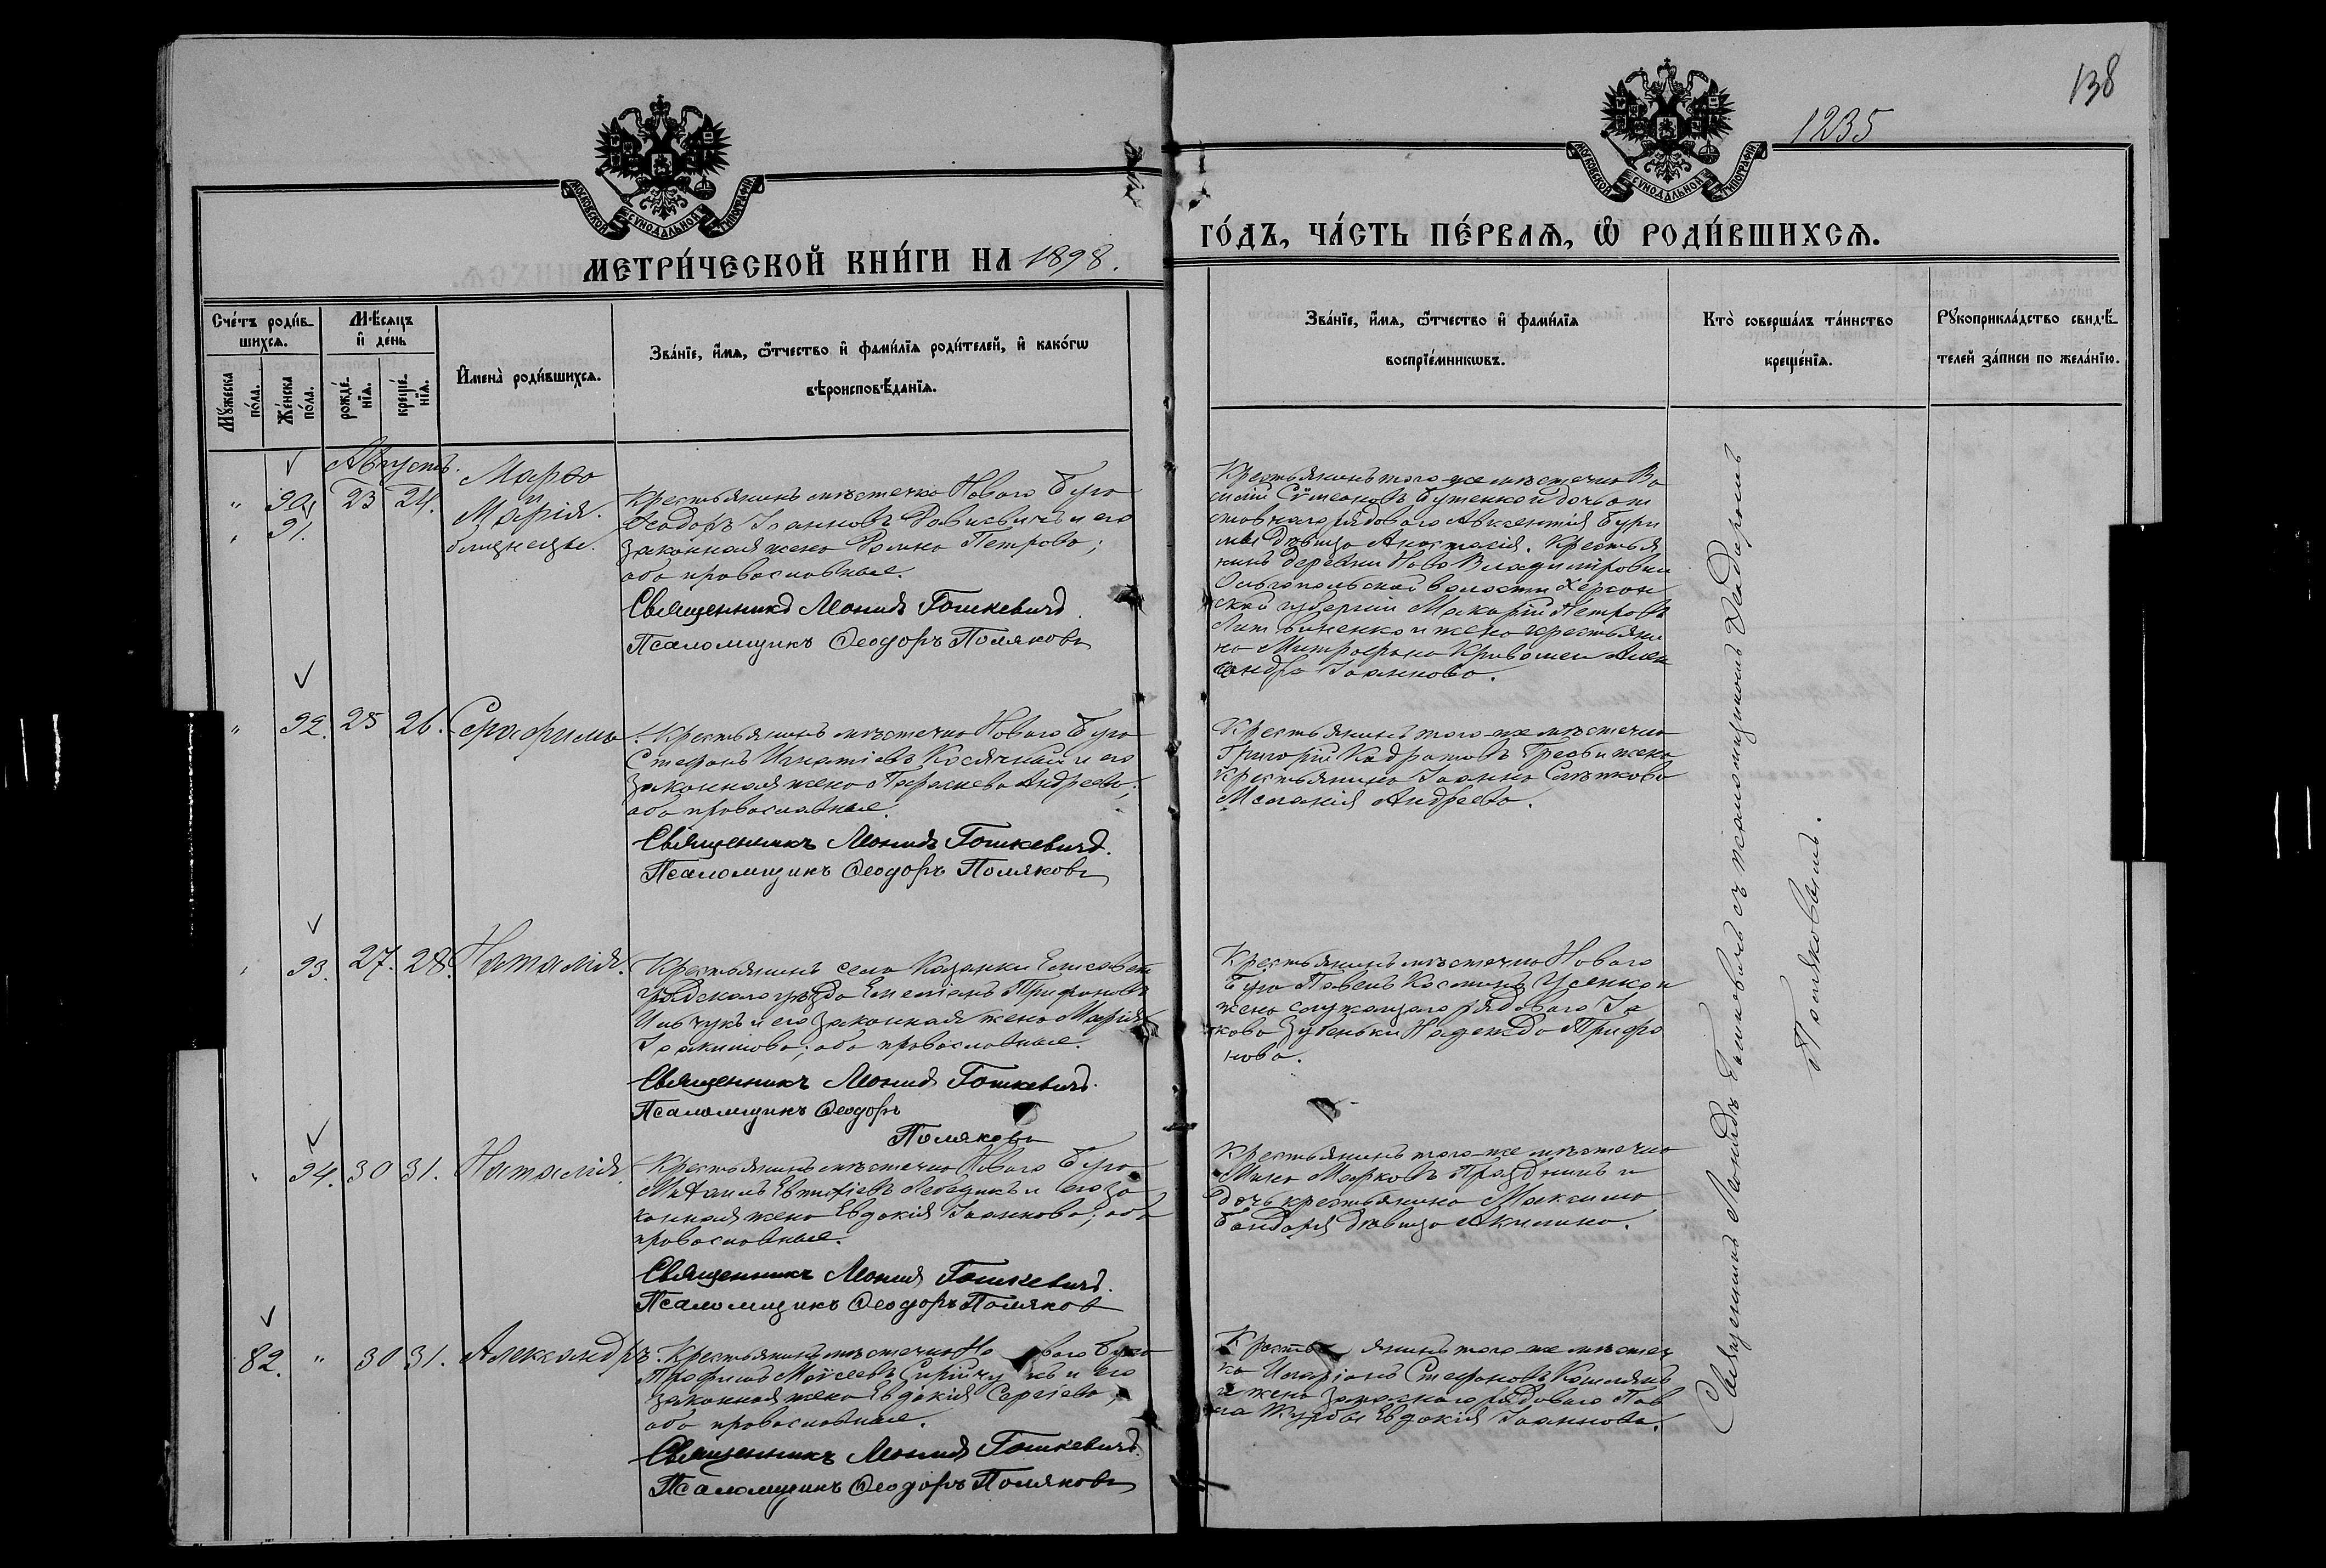 138
1235
МОСКОВСКОЙ СУНОДАЛЬНОЙ ТИПОГРАФІИ
МОСКОВСКОЙ СУНОДАЛЬНОЙ ТИПОГРАФІИ
МЕТРИ́ЧЕСКОЙ КНИ́ГИ НА 1898.
ГО́ДЪ, ЧА́СТЬ ПЕ́РВАѦ, Ѡ РОДИ́ВШИХСѦ.
Сче́тъ роди́в-
шихсѧ.
Мꙋ́жеска по́ла.
Же́нска по́ла.
Мѣ́сѧцъ и҆ де́нь
рожде́-нїѧ.
креще́-нїѧ.
И҆мена̀ роди́вшихсѧ.
Зва́нїе, и҆́мѧ, ѻ҆́тчество и҆ фами́лїѧ роди́телей, и҆ како́гѡ
вѣроисповѣ́данїѧ.
Зва́нїе, и҆́мѧ, ѻ҆́тчество и҆ фами́лїѧ
воспрїе́мникѡвъ.
Кто̀ соверша́лъ та́инство
креще́нїѧ.
Рꙋкоприкла́дство свидѣ́-
телей за́писи по жела́нїю.
Августъ.
" 90 23 24. Марѳа
" 91. и
Марія.
близнецы.
Крестьянинъ мѣстечка Новаго Буга
Ѳеодоръ Іоанновъ и его
законная жена Петрова;
оба православные.
Священникъ Леонидъ Гошкевичъ
Псаломщикъ Ѳеодоръ Поляковъ
Крестьянинъ того-же мѣстечка Ва
силій Сѵмеоновъ Бутенко и дочь от
ставного рядоваго Авксентія Бури
мы дѣвица Анастасія. Крестья
нинъ деревни Ново Владимировки
Ольгопольской волости Херсон
ской губерніи Макарій Петровъ
Литвиненко и жена крестьяни
на Митрофана Кривошеи Алек
сандра Іоаннова.
" 92. 25 26. Серафима
Крестьянинъ мѣстечка Новаго Буга
Стефанъ Игнатіевъ Косячный и его
законная жена Параскева Андреева;
оба православные.
Священникъ Леонидъ Гошкевичъ.
Псаломщикъ Ѳеодоръ Поляковъ
Крестьянинъ того-же мѣстечка
Григорій Кодратовъ и жена
крестьянина Іоанна
Меланія Андреева.
" 93. 27. 28. Наталія.
Крестьянинъ села Казанки Елисавет
градскаго уѣзда Емеліанъ Трифоновъ
Ильчукъ и его законная жена Марія
Іоакимова; оба православные.
Священникъ Леонидъ Гошкевичъ.
Псаломщикъ Ѳеодоръ
Поляковъ
Крестьянинъ мѣстечка Новаго
Буга Павелъ Косминъ Усенко и
жена служащаго рядоваго Іа
кова Зубенька Надежда Трифо
нова.
" 94. 30 31. Наталія.
Крестьянинъ мѣстечка Новаго Буга
Михаилъ Евтихіевъ Лебедикъ и его за
конная жена Евдокія Іоаннова; оба
православные.
Священникъ Леонидъ Гошкевичъ.
Псаломщикъ Ѳеодоръ Поляковъ
Крестьянинъ того-же мѣстечка
Марковъ и
дочь крестьянина Максима
Бондаря дѣвица Акилина.
82. " 30 31. Александръ.
Крестьянинъ мѣстечка Новаго Буга
Трофимъ Моѵсеевъ и его
законная жена Евдокія Сергіева;
оба православные.
Священникъ Леонидъ Гошкевичъ.
Псаломщикъ Ѳеодоръ Поляковъ
Крестьянинъ того-же мѣстеч
ка Иларіонъ Стефановъ
и жена запаснаго рядоваго Пав
ла Журбы Евдокія Іоаннова.
Священникъ Леонидъ Гошкевичъ съ псаломщикомъ Ѳеодоромъ
Поляковымъ.